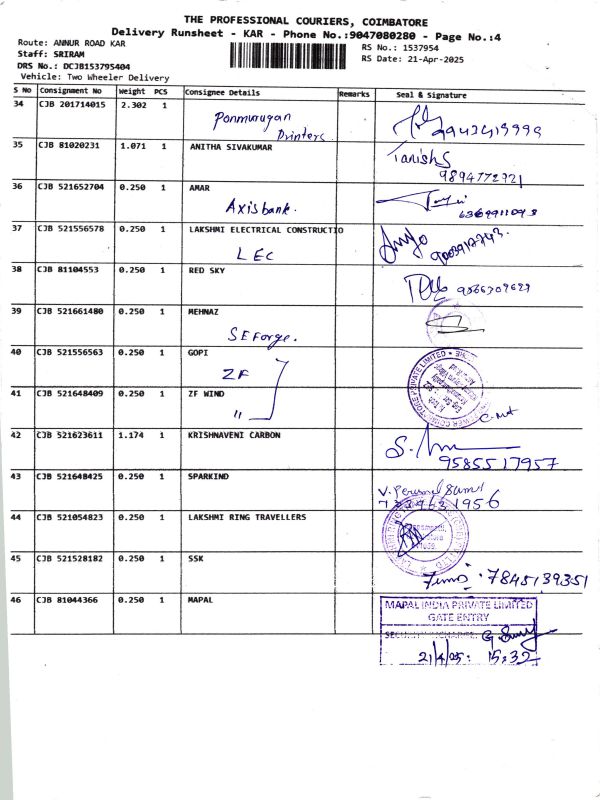 THE PROFESSIONAL COURIERS, COIMBATORE
Delivery Runsheet - KAR - Phone No.:9047080280 - Page No.:4
Route: ANNUR ROAD KAR
RS No.: 1537954
Staff: SRIRAM
RS Date: 21-Apr-2025
DRS No.: DCJB153795404
Vehicle: Two Wheeler Delivery
S No Consignment No Weight PCS Consignee Details Remarks Seal & Signature
34 CJB 201714015 2.302 1
Ponmurugan
Printers.
9943419999
35 CJB 81020231 1.071 1 ANITHA SIVAKUMAR
Tanish S
9894772721
36 CJB 521652704 0.250 1 AMAR
Axisbank.
6369911093
37 CJB 521556578 0.250 1 LAKSHMI ELECTRICAL CONSTRUCTIO
LEC
38 CJB 81104553 0.250 1 RED SKY
9566309629
39 CJB 521661480 0.250 1 MEHNAZ
SEForge.
40 CJB 521556563 0.250 1 GOPI
ZF
41 CJB 521648409 0.250 1 ZF WIND
"
42 CJB 521623611 1.174 1 KRISHNAVENI CARBON
9585517957
43 CJB 521648425 0.250 1 SPARKIND
44 CJB 521054823 0.250 1 LAKSHMI RING TRAVELLERS
45 CJB 521528182 0.250 1 SSK
: 7845139351
46 CJB 81044366 0.250 1 MAPAL
MAPAL INDIA PRIVATE LIMITED
GATE ENTRY
21/4/25: 15:32